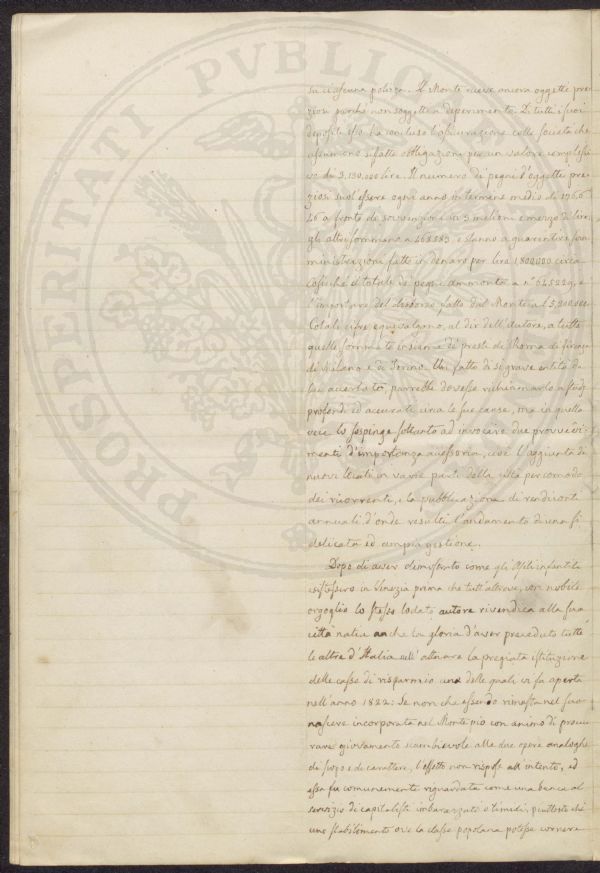 su ciascuna polizza. Il Monte riceve ancora oggetti pre
ziosi purché non soggetti a deperimento. Di tutti i suoi
depositi esso ha concluso l'assicurazione colle società che
assumono siffatte obbligazioni per un valore complessi
vo di 3,130,000 lire. Il numero di pegni d'oggetti pre
ziosi suol essere ogni anno in termine medio di
46 a fronte di sovvenzioni in 3 milioni e mezzo di lire
gli altri sommano a 468583, e stanno a guarentire som
ministrazioni fatte in denaro per lire 1,800,000 circa
Cosicché il totale dei pegni ammonta a n° 645229, e
l'importare del fatto dal Monte a l. 5,300,000
Cotali cifre equivalgono, al dir dell'autore, a tutte
quelle sommate insieme dei presti di Roma di Firenze
di Milano e di Torino. Un fatto di sì grave entità da
lui accertato, parrebbe dovesse richiamarlo a studj
profondi ed accurati circa le sue cause, ma in quella
vece lo sospinge soltanto ad invocare due provvedi
menti d'importanza accessoria, cioè l'aggiunta di
nuovi Uffici in varie parti della città per comodo
dei ricorrenti, e la pubblicazione di rendiconti
annuali d'onde resulti l'andamento di una sì
delicata ed ampia gestione.
Dopo di aver dimostrato come gli Asili infantili
esistessero in Venezia prima che tutt'altrove, con nobile
orgoglio lo stesso lodato autore rivendica alla sua
città natia anche la gloria d'aver preceduto tutte
le altre d'Italia nell'attuare la pregiata istituzione
delle casse di risparmio una delle quali vi fu aperta
nell'anno 1822. Se non che essendo rimasta nel suo
nascere incorporata nel Monte pio con animo di procu
rare giovamento scambievole alle due opere analoghe
di scopo e di carattere, l'effetto non rispose all'intento, ed
essa fu comunemente riguardata come una banca al
servizio di capitalisti imbarazzati o timidi, piuttosto che
uno stabilimento ove la classe popolana potesse correre
PROSPERITATI PVBLICAE